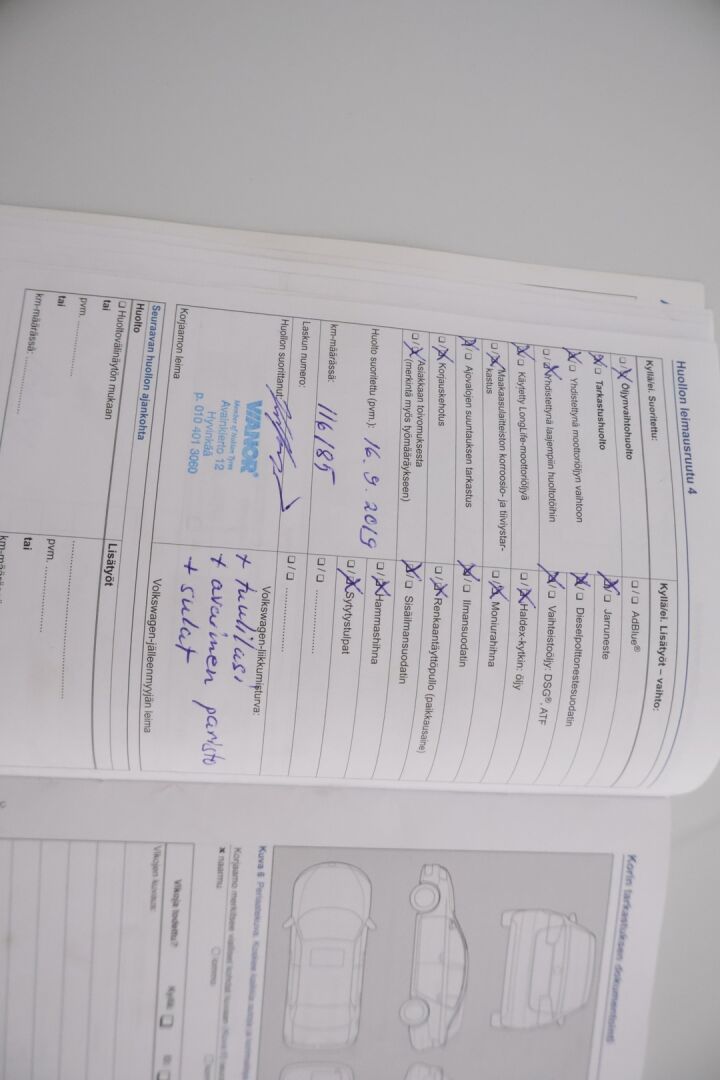 Huollon leimausruutu 4
Kyllä/ei Suoritettu:
☐ / ☒ Öljynvaihtohuolto
☒ / ☐ Tarkastushuolto
☒ / ☐ Yhdistettynä moottoriöljyn vaihtoon
☐ / ☒ Yhdistettynä laajempiin huoltotöihin
☒ / ☐ Käytetty LongLife-moottoriöljyä
☐ / ☒ Maakaasulaitteiston korroosio- ja tiiviystar-
kastus
☒ / ☐ Ajovalojen suuntauksen tarkastus
☐ / ☒ Korjauskehotus
☐ / ☒ Asiakkaan toivomuksesta
(merkintä myös työmääräykseen)
Huolto suoritettu (pvm.): 16.9.2019
km-määrässä: 116185
Laskun numero:
Huollon suorittanut:
VIANOR
Member of Nokian Tyres
Avainkierto 12
Hyvinkää
p. 010 401 3060
Korjaamon leima
Kyllä/ei. Lisätyöt – vaihto:
☐ / ☐ AdBlue®
☒ / ☐ Jarruneste
☒ / ☐ Dieselpolttonestesuodatin
☒ / ☐ Vaihteistoöljy: DSG®, ATF
☐ / ☒ Haldex-kytkin: öljy
☐ / ☒ Moniurahihna
☒ / ☐ Ilmansuodatin
☐ / ☒ Renkaantäyttöpullo (paikkausaine)
☒ / ☐ Sisäilmansuodatin
☐ / ☒ Hammashihna
☐ / ☒ Sytytystulpat
☐ / ☐ ....................
☐ / ☐ ....................
Volkswagen-liikkumisturva:
+ tuulilasi
+ avaimen paristo
+ sulat
Volkswagen-jälleenmyyjän leima
Seuraavan huollon ajankohta
Huolto
☐ Huoltovälinäytön mukaan
tai
pvm. ....................
tai
km-määrässä: ....................
Lisätyöt
pvm. ....................
tai
km-määrässä
Korin tarkastuksen dokumentointi
Kuva 6 Periaatekuva.
x naarmu
Vikoja todettu?
Kyllä ☐
Vikojen kuvaus: